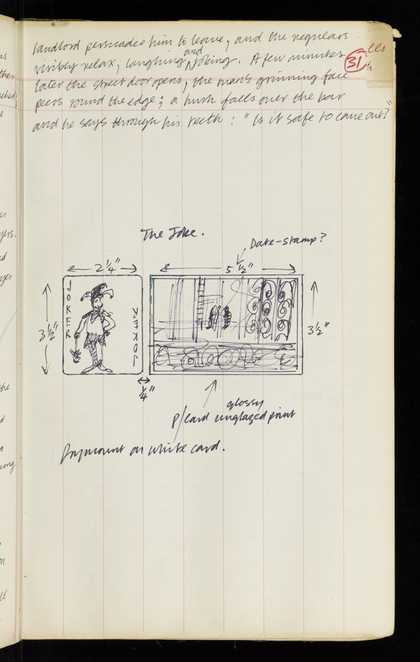 landlord persuades him to leave, and the regulars
visibly relax, laughing and joking. A few minutes
31
later the street door opens, the man's grinning face
peers round the edge; a hush falls over the bar
and he says through his teeth: "Is it safe to come out?"
The Joke.
Date-stamp?
2 1/4"
5 1/2"
JOKER
JOKER
3 1/2"
3 1/2"
1/4"
glossy
P/card unglazed print
Drymount on white card.